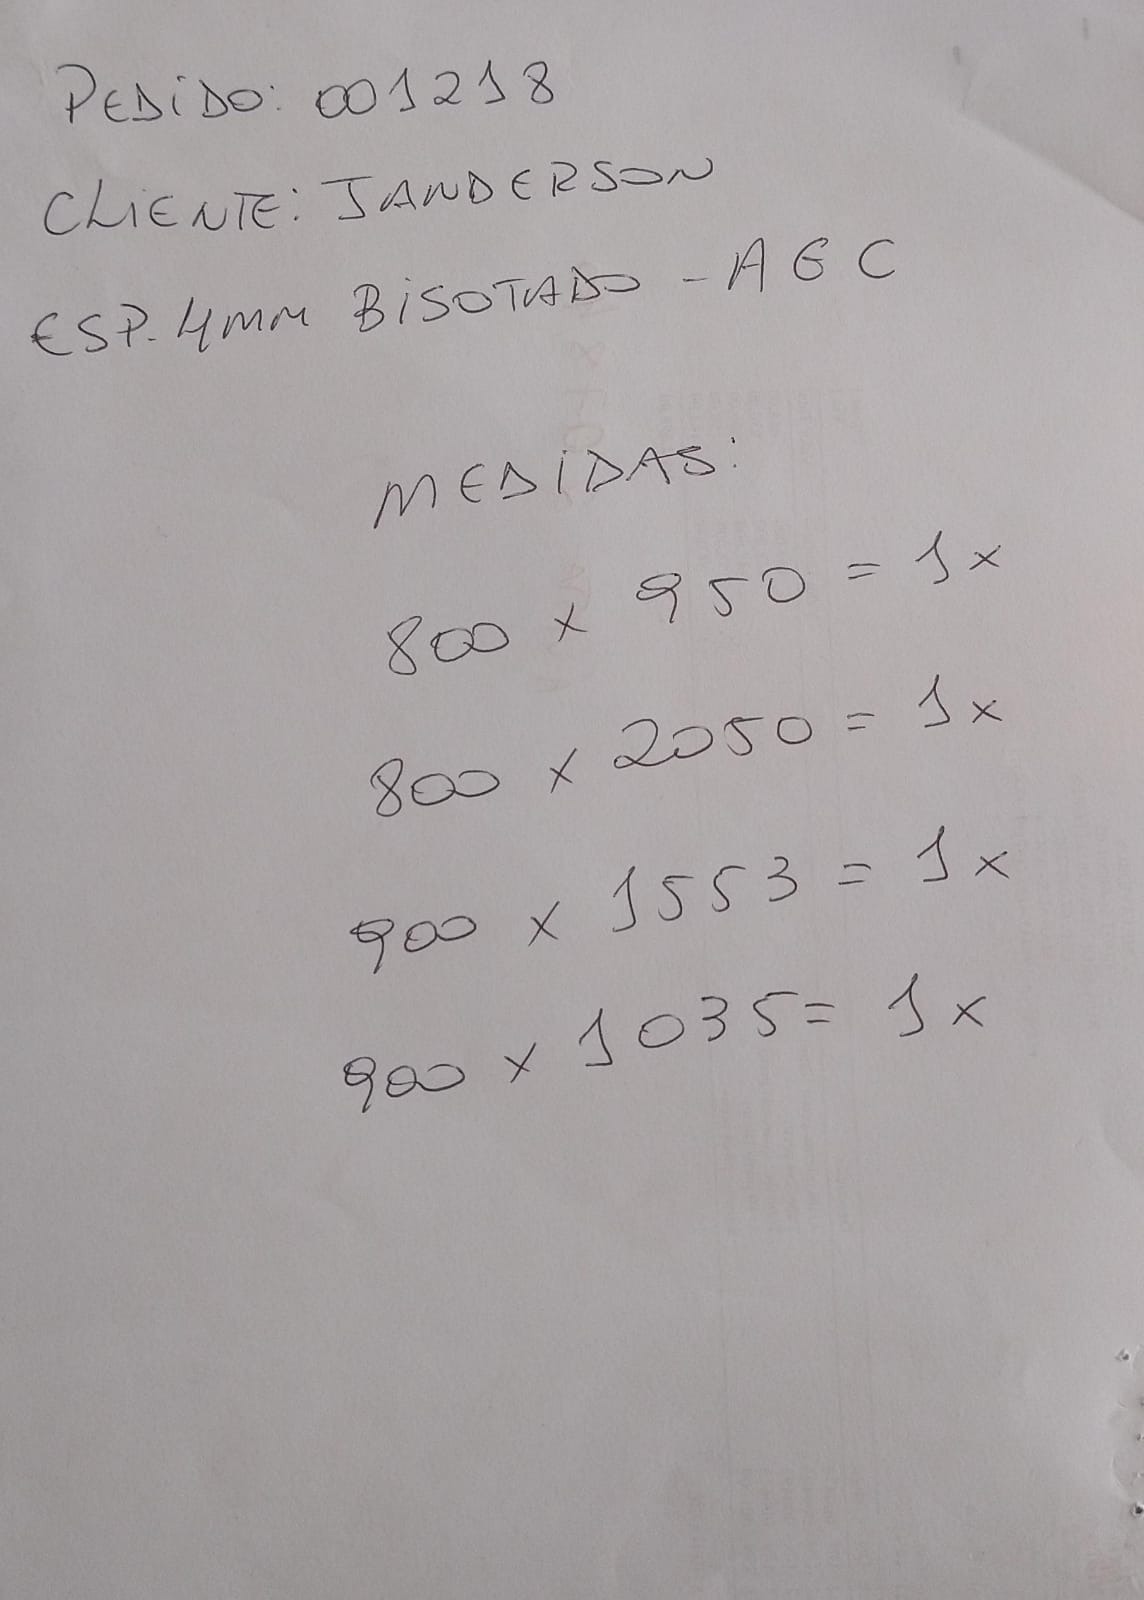 PEDIDO: 001218
CLIENTE: JANDERSON
ESP. 4mm BISOTADO - AGC
MEDIDAS:
800 x 950 = 1x
800 x 2050 = 1x
900 x 1553 = 1x
900 x 1035 = 1x